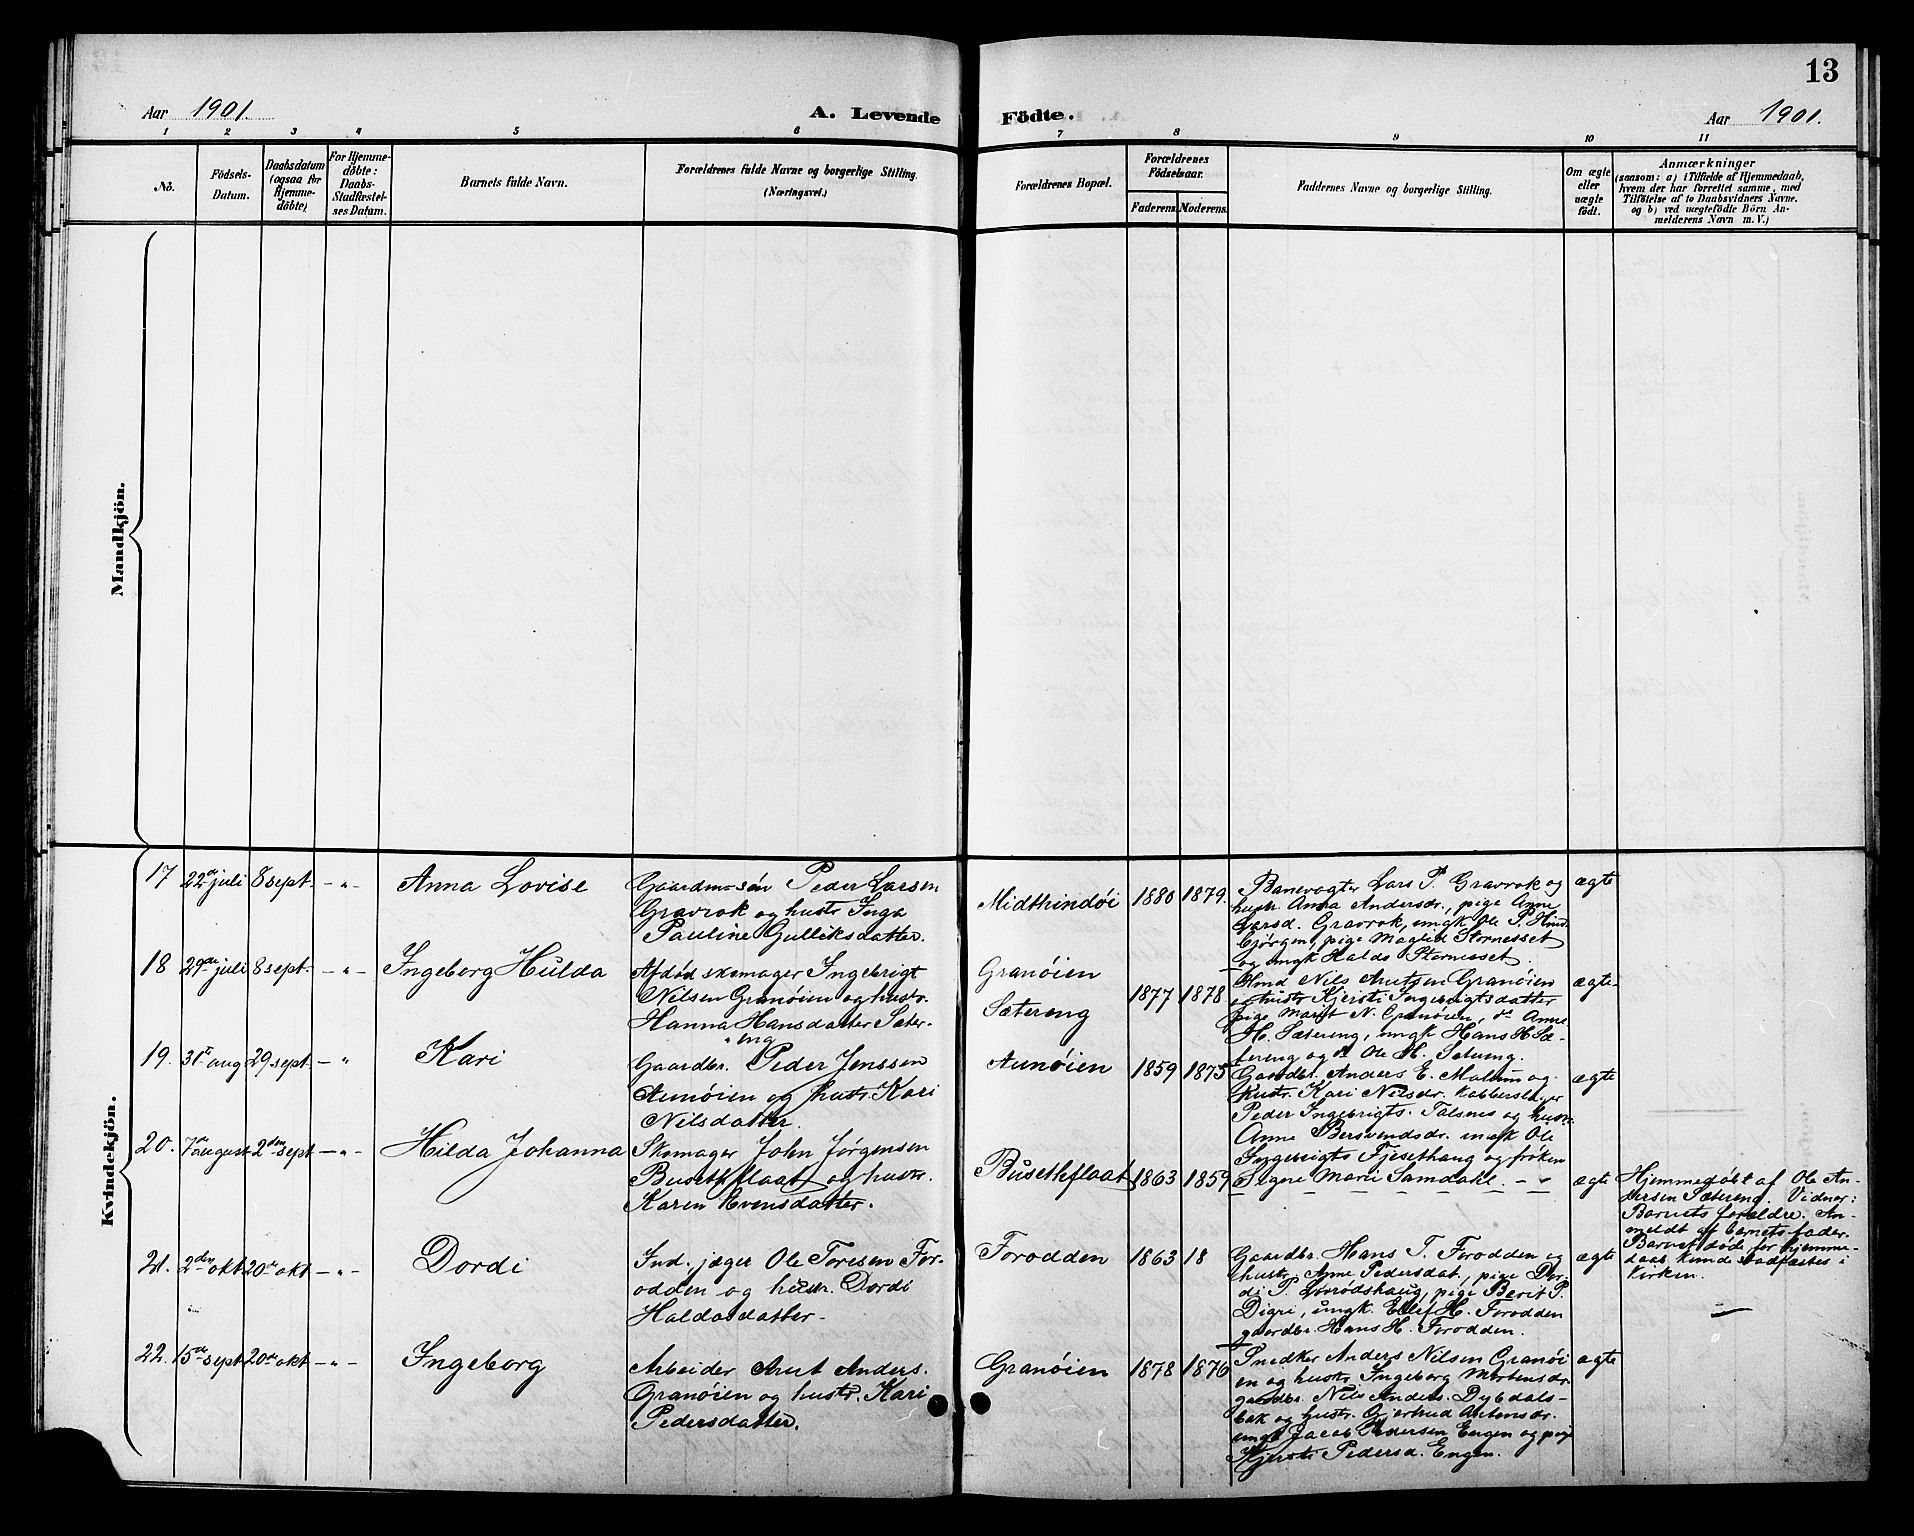 13
Aar 1901.
A. Levende Födte.
Aar 1901.
1 2 3 4 5 6 7 8 9 10 11
No.
Födsels-
Datum.
Daabsdatum
(ogsaa for
Hjemme-
döbte)
For Hjemme-
döbte:
Daabs-
Stadfæstel-
ses Datum.
Barnets fulde Navn.
Forældrenes fulde Navne og borgerlige Stilling.
(Næringsvei.)
Forældrenes Bopæl.
Forældrenes
Födselsaar.
Faderens. Moderens.
Faddernes Navne og borgerlige Stilling.
Om ægte
eller
uægte
födt.
Anmærkninger
(saasom: a) i Tilfælde af Hjemmedaab,
hvem der har forrettet samme, med
Tilföielse af to Daabsvidners Navne.
og b) ved uægtefödte Börn An-
melderens Navn m. V.)
Mandkjön.
Kvindekjön.
17 22de juli 8 sept. - „ -
Anna Lovise
Gaardm-søn Peder Larsen
Gravrok og hustr Inga
Pauline Gulliksdatter.
Midthindöi
1880 1879.
Banevogter Lars P. Gravrok og
hustr. Anna Andersdr., pige Anne
Larsd. Gravrok, ungk Ole P. Hind
bjørgen, pige Magled Stornesset
og ungk Haldo Stornesset.
ægte
18 29de juli 8 sept. - „ -
Ingeborg Hulda
Afdød skomager Ingebrigt
Nilsen Granøien og hustr.
Hanna Hansdatter Sæter-
eng
Granøien
Sætereng
1877 1878
Nils Arntsen Granøien
og hustr Kjersti Ingebrigtsdatter
pige Marit N. Granøien, do Anne
H. Sætereng, ungk Hans H. Sæ-
tereng og do Ole H. Sætereng.
ægte
19. 31te aug 29 sept. - „
Kari
Gaardbr. Peder Jenssen
Aunøien og hustr. Kari
Nilsdatter.
Aunøien
1859 1875
Gaardbr. Anders E. Malum og
hustr. Kari Nilsdr. Kobbersl.
Peder Ingebrigts. Talsnes og hustr.
Anne Bersvendsdr. ungk Ole
Ingebrigts Fjesethaug og frøken
Signe Marie Samdahl. - „
ægte
20. 7de august 2den sept - „ -
Hilda Johanna
Skomager John Jørgensen
Busethflaat og hustr.
Karen Evensdatter.
Busethflaat
1863 1859
ægte
Hjemmedøbt af Ole An-
dersen Sætereng. Vidner:
Barnets forældre. An-
meldt af barnets fader.
Barnet døde før hjemme-
daab kunde stadfæstes i
kirken.
21. 2den okt 20de okt - „ -
Dordi
Ind. jæger Ole Toresen For-
odden og hustr. Dordi
Haldosdatter
Forodden
1863 18
Gaardbr. Hans T. Forodden og
hustr. Anne Pedersdat., pige Dor-
di P. pige Berit P.
Digri, ungk. Ellef H. Forodden
gaardbr. Hans H. Forodden.
ægte
22. 15de sept 20de okt - „ -
Ingeborg
Arbeider Arnt Anders.
Granøien og hustr. Kari
Pedersdatter.
Granøien
1878 1876
Snedker Anders Nilsen Granøi
en og hustr. Ingeborg Mortensdr.
gaardbr. Nils Anders. Dybdals-
bak og hustr. Gjertrud Arntensdr.
ungk Jacob Pedersen Engen og pige
Kjersti Pedersd. Engen.
ægte